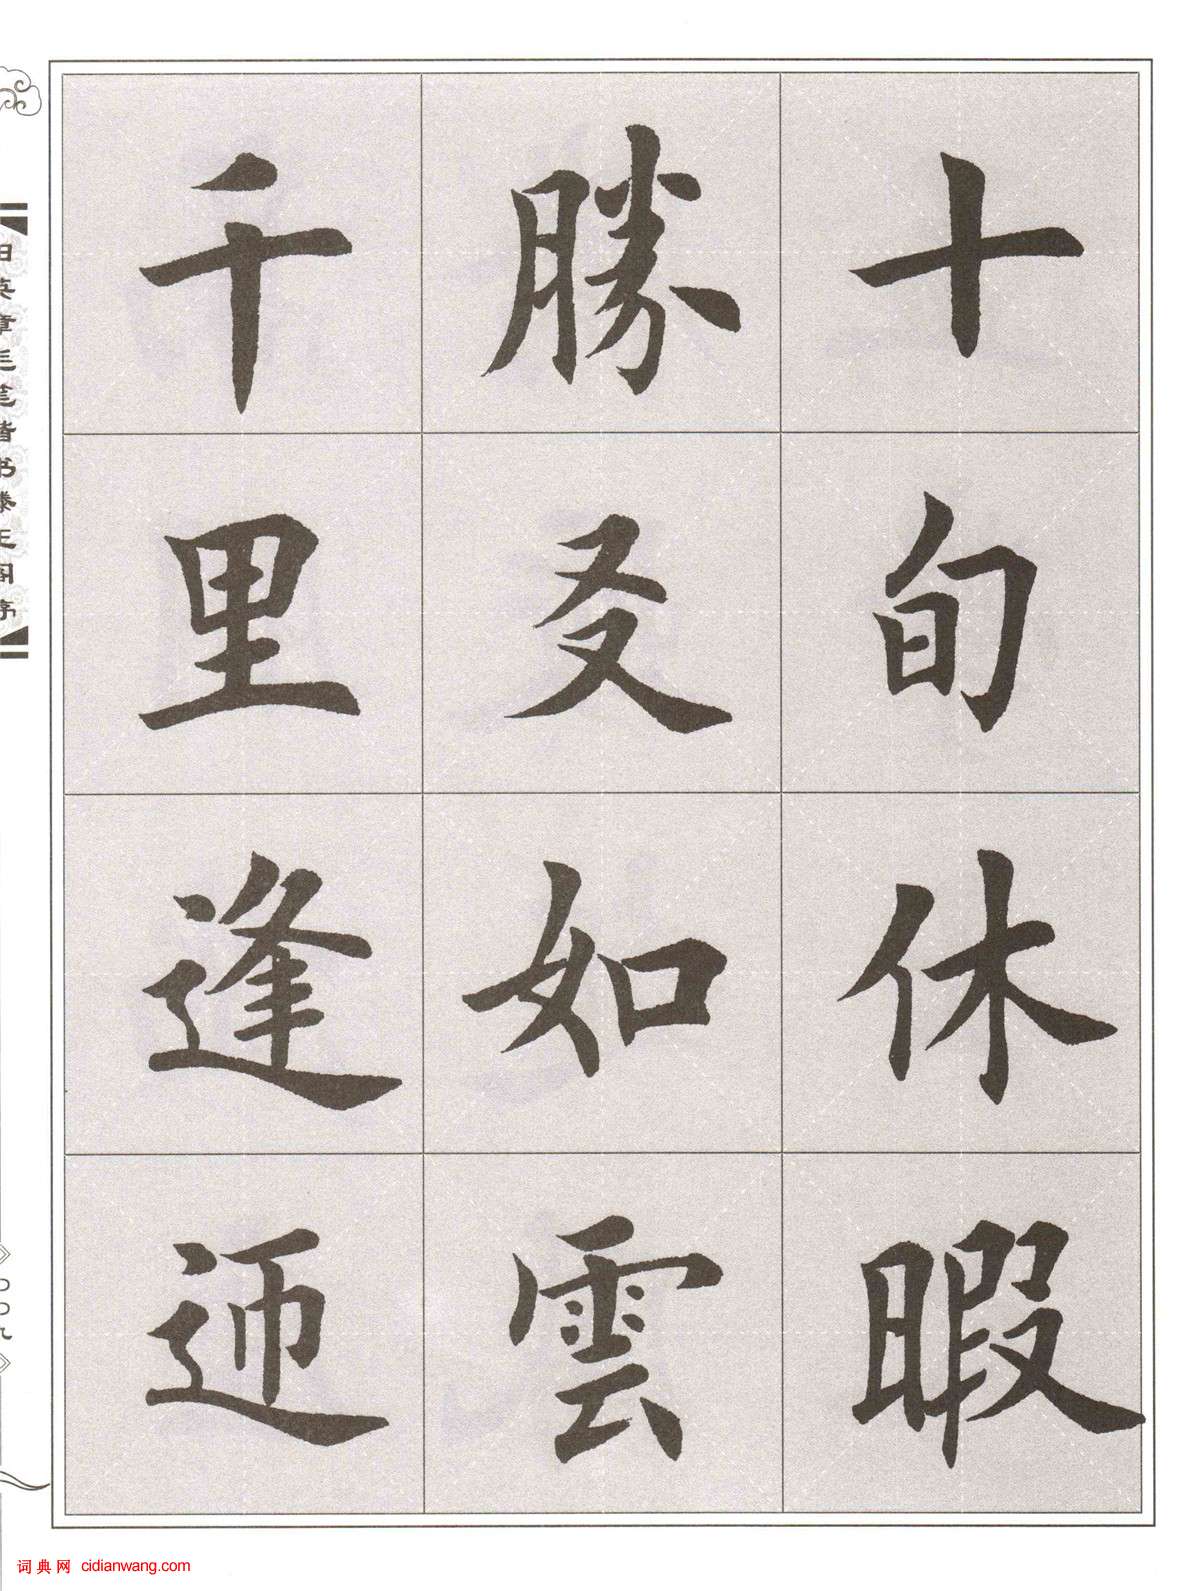 十旬休暇
勝㕛如雲
千里逢迊
田英章毛笔楷书滕王阁序
词典网 cidianwang.com